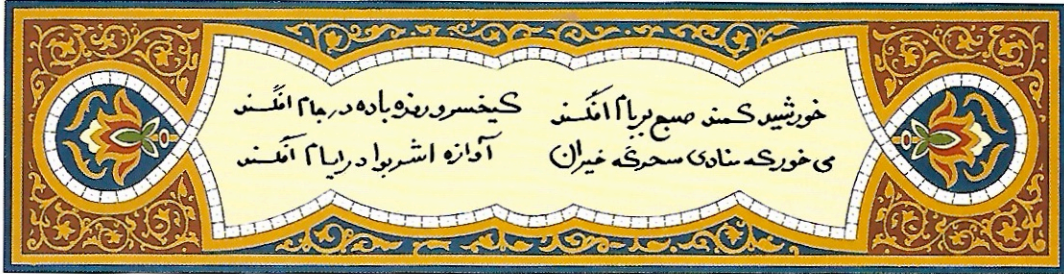 خورشید کمند صبح بر بام افکند کیخسرو روز باده در جام افکند
می خور که منادی سحرگه خیزان آوازه اشربوا در ایام افکند